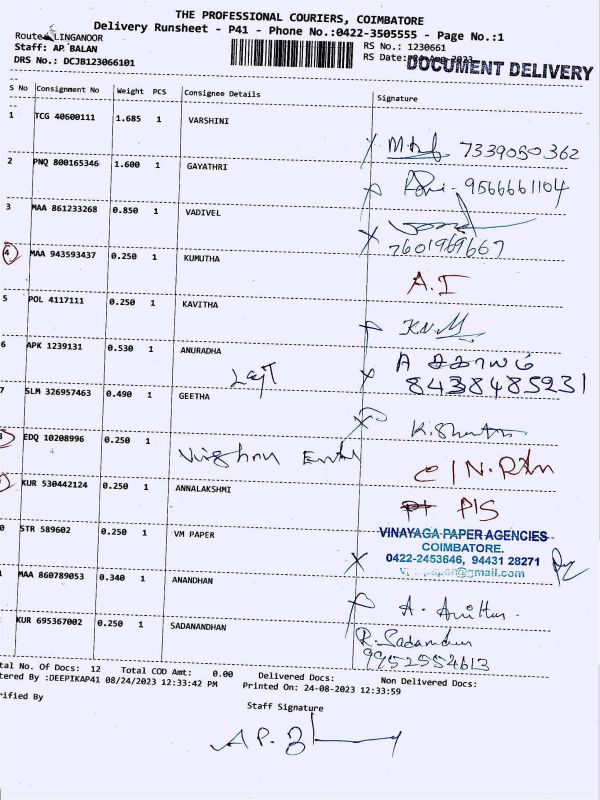 THE PROFESSIONAL COURIERS, COIMBATORE
Delivery Runsheet - P41 - Phone No.:0422-3505555 - Page No.:1
Route: LINGANOOR
RS No.: 1230661
Staff: AP. BALAN
RS Date:
DRS No.: DCJB123066101
DOCUMENT DELIVERY
S No Consignment No Weight PCS Consignee Details Signature
1 TCG 40600111 1.685 1 VARSHINI
7339050362
2 PNQ 800165346 1.600 1 GAYATHRI
9566661104
3 MAA 861233268 0.850 1 VADIVEL
7601969667
4 MAA 943593437 0.250 1 KUMUTHA
A.I
5 POL 4117111 0.250 1 KAVITHA
K.N.M
6 APK 1239131 0.530 1 ANURADHA
8438485231
7 SLM 326957463 0.490 1 GEETHA
EDQ 10208996 0.250 1
C/N.
KUR 530442124 0.250 1 ANNALAKSHMI
P/S
0 STR 589602 0.250 1 VM PAPER
VINAYAGA PAPER AGENCIES
COIMBATORE.
0422-2453646, 94431 28271
@gmail.com
MAA 860789053 0.340 1 ANANDHAN
KUR 695367002 0.250 1 SADANANDHAN
R. Sadanandan
9952554613
tal No. Of Docs: 12 Total COD Amt: 0.00 Delivered Docs: Non Delivered Docs:
tered By :DEEPIKAP41 08/24/2023 12:33:42 PM Printed On: 24-08-2023 12:33:59
rified By
Staff Signature